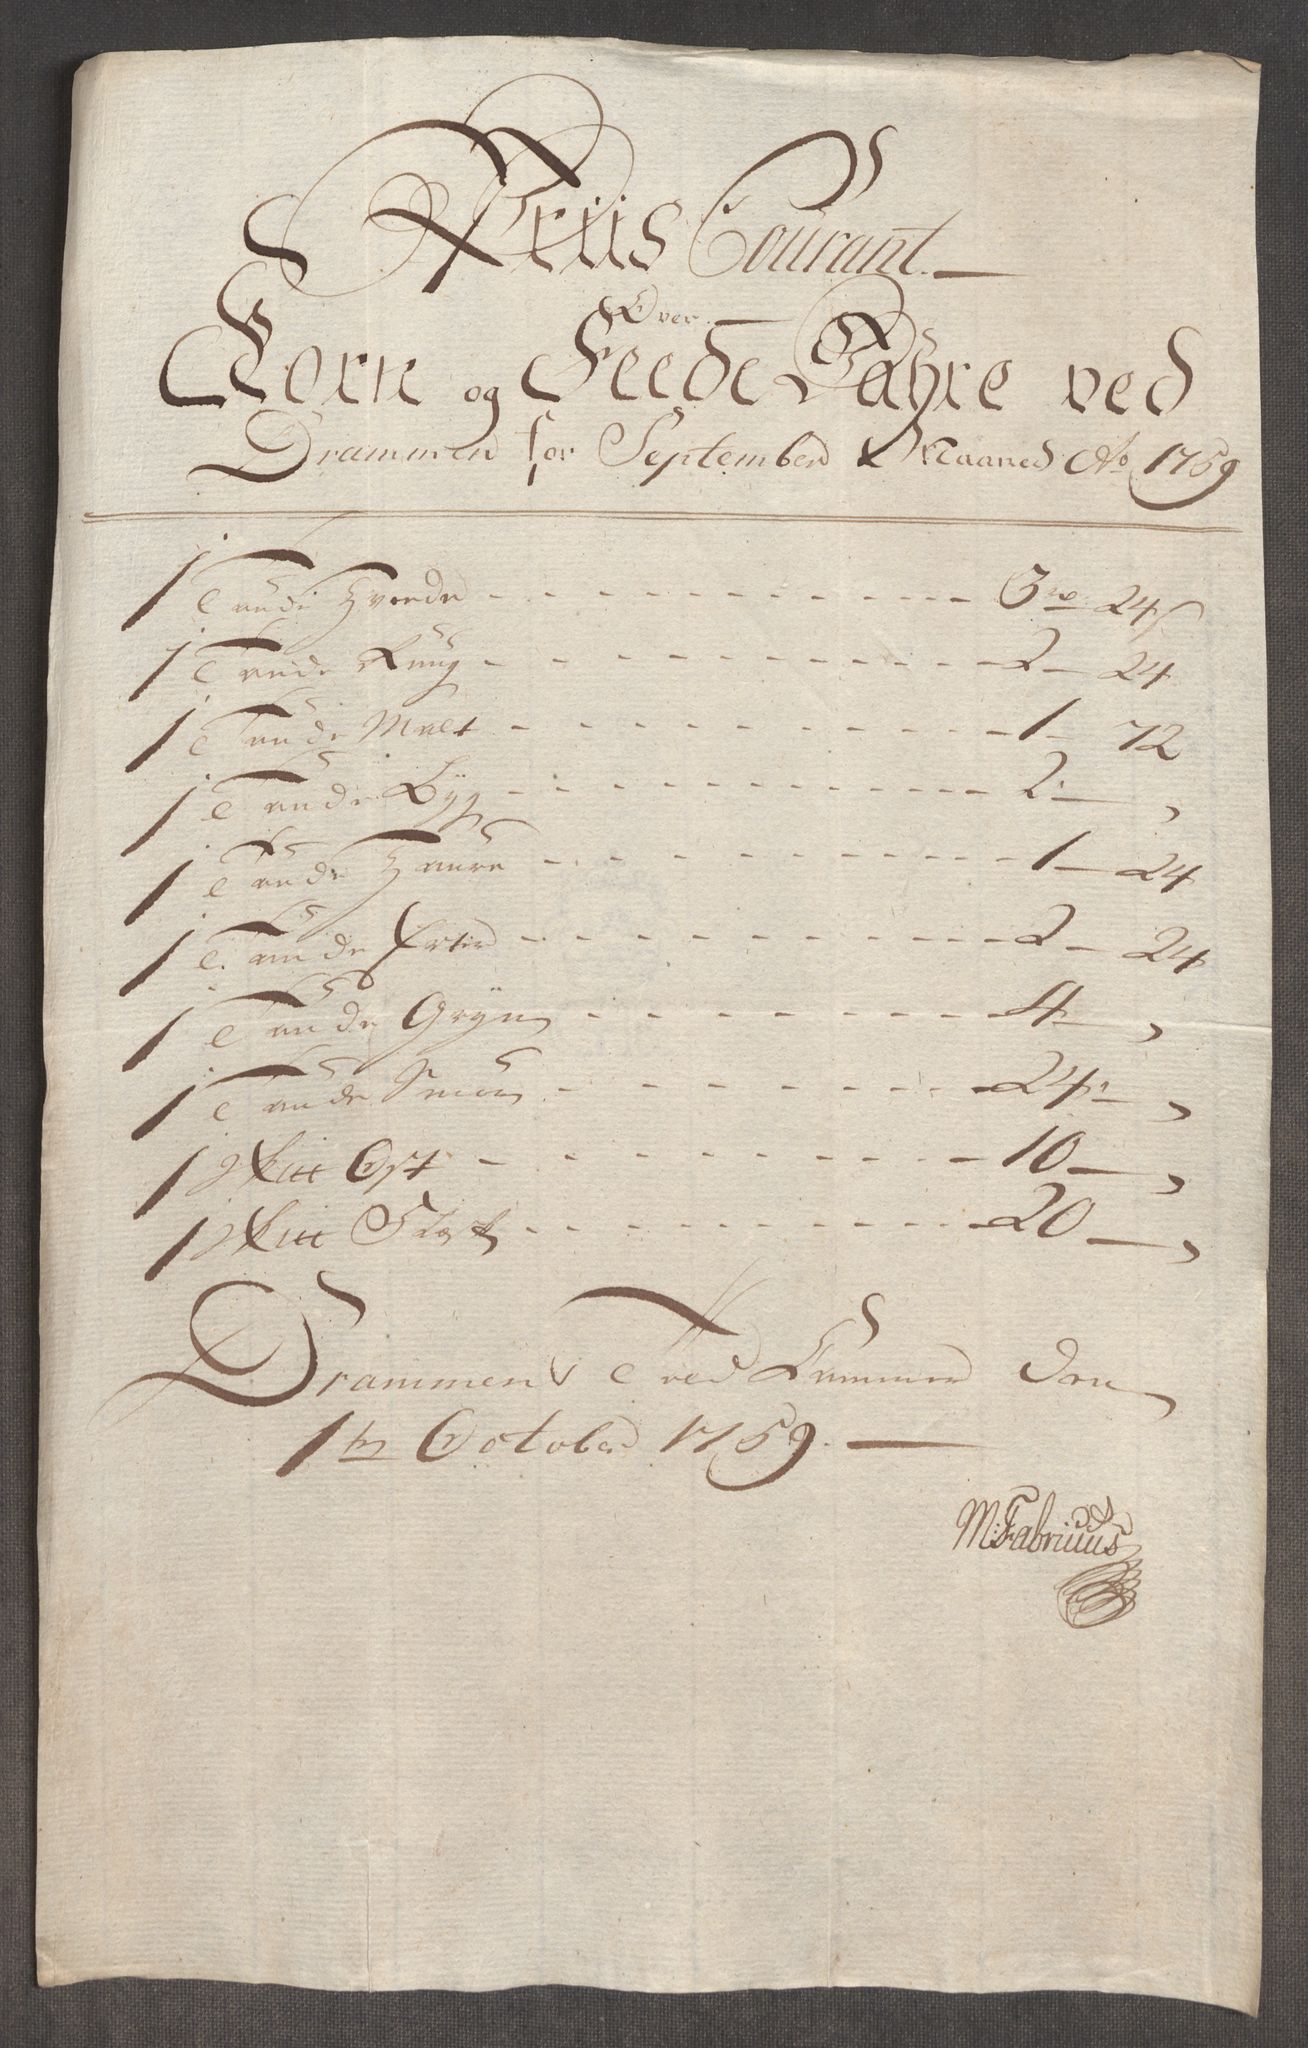 Priis Courant.
Over
Korn og Feede Vahre ved
Drammen for September Maaned Ao 1759
1 Tønde Hvede - - - 3 rd 24 s
1 Tønde Rüug - - - 2 - 24
1 Tønde Malt - - - 1 - 72
1 Tønde Byg - - - 2 - "
1 Tønde Haure - - - 1 - 24
1 Tønde Erter - - - 2 - 24
1 Tønde Gryn - - - 4 - "
1 Tønde Smør - - - 24 - "
1 Ost - - - 10 - "
1 - - - 20 - "
Drammens Told Kammer den
1ten October 1759.
M: Fabricius